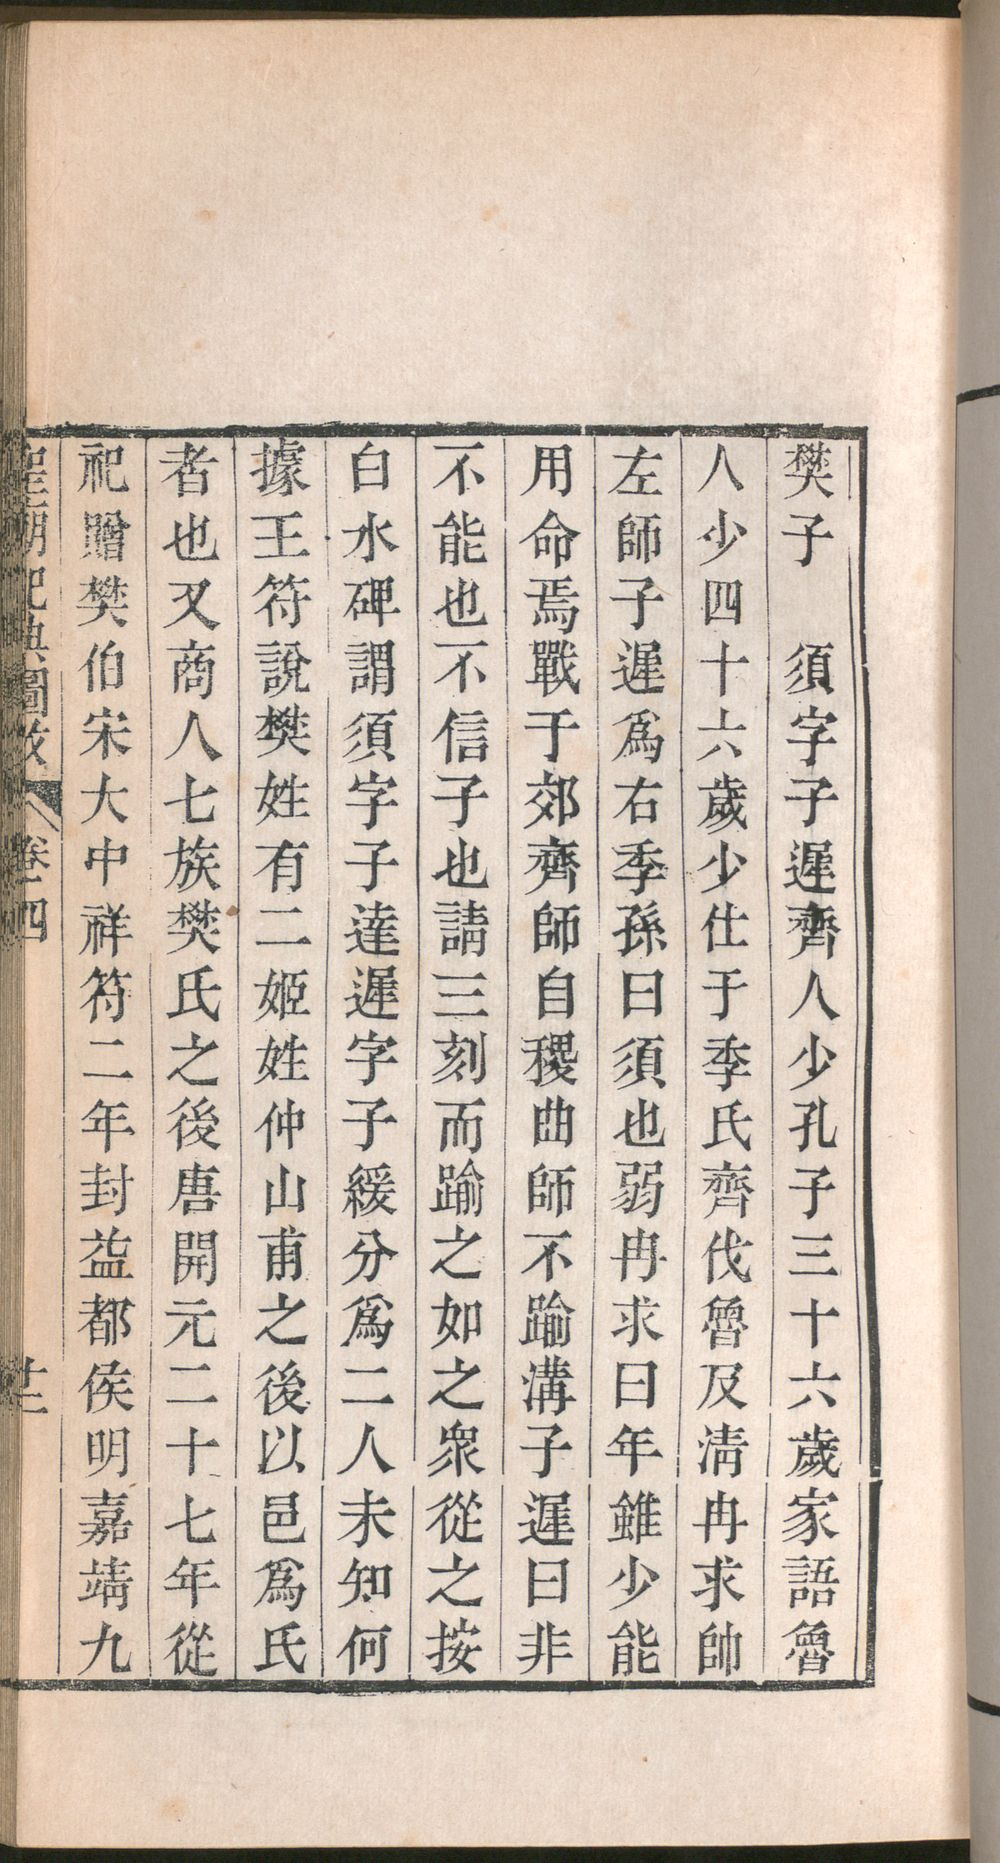 樊子　須字子遲齊人少孔子三十六歲家語魯
人少四十六歲少仕于季氏齊伐魯及清冉求帥
左師子遲爲右季孫曰須也弱冉求曰年雖少能
用命焉戰于郊齊師自稷曲師不踰溝子遲曰非
不能也不信子也請三刻而踰之如之眾從之按
白水碑謂須字子達遲字子緩分爲二人未知何
據王符說樊姓有二姬姓仲山甫之後以邑爲氏
者也又商人七族樊氏之後唐開元二十七年從
祀贈樊伯宋大中祥符二年封益都侯明嘉靖九
聖廟祀典圖攷　卷四　廿二